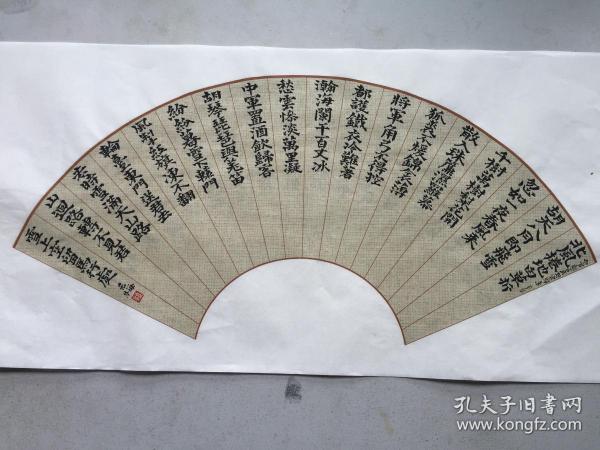 北風捲地白草折
胡天八月即飛雪
忽如一夜春風來
千樹萬樹梨花開
散入珠簾濕羅幕
狐裘不煖錦衾薄
將軍角弓不得控
都護鐵衣冷難著
瀚海闌干百丈冰
愁雲慘淡萬里凝
中軍置酒飲歸客
胡琴琵琶與羌笛
紛紛暮雪下轅門
風掣紅旗凍不翻
輪臺東門送君
去時雪滿天山路
山迴路轉不見君
雪上空留馬行處
孔夫子旧书网
www.kongfz.com